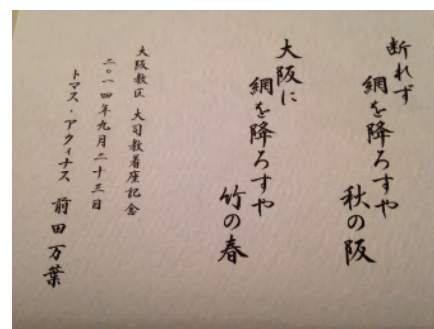 断れず
網を降ろすや
秋の阪
大阪に
網を降ろすや
竹の春
大阪教区 大司教着座記念
二〇一四年九月二十三日
トマス・アクィナス 前田万葉